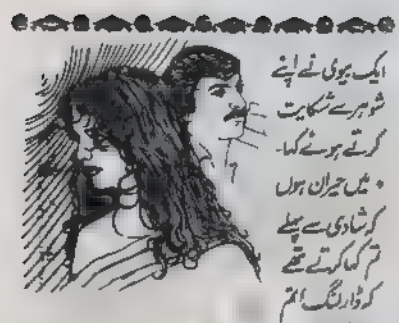 ایک بیوی نے اپنے
شوہر سے شکایت
کرتے ہوئے کہا۔
" میں حیران ہوں
کہ شادی سے پہلے
تم کہا کرتے تھے
کہ ڈارلنگ! تم